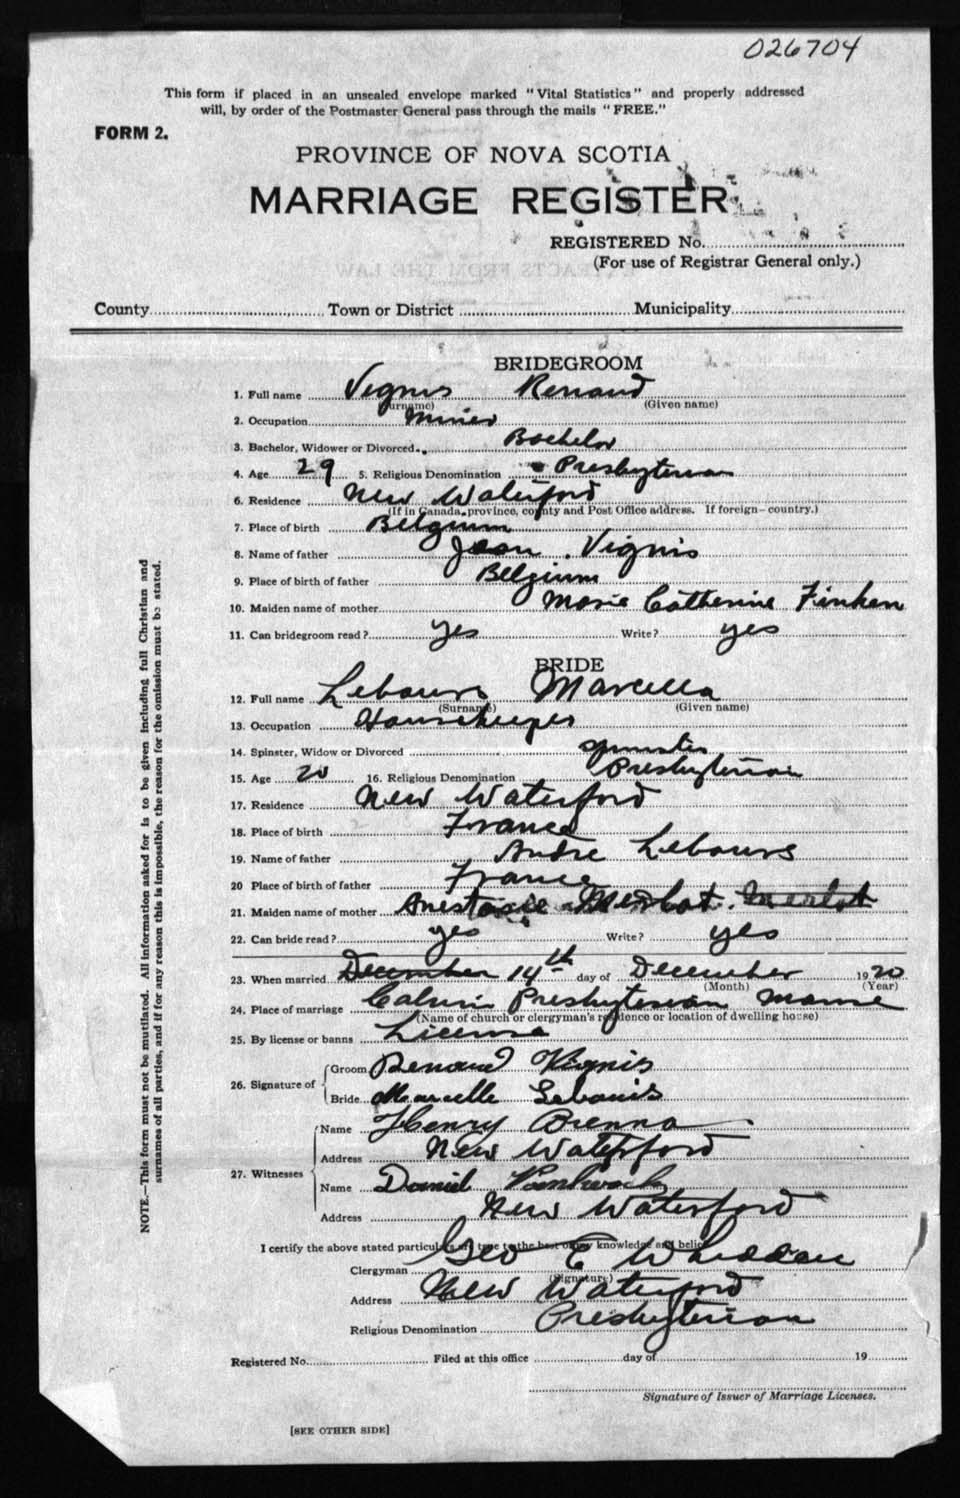 026704
This form if placed in an unsealed envelope marked "Vital Statistics" and properly addressed
will, by order of the Postmaster General pass through the mails "FREE."
FORM 2.
PROVINCE OF NOVA SCOTIA
MARRIAGE REGISTER
REGISTERED No.
(For use of Registrar General only.)
County Town or District Municipality
BRIDEGROOM
1. Full name Vignis Renaud
(Surname) (Given name)
2. Occupation Miner
3. Bachelor, Widower or Divorced Bachelor
4. Age 29 5. Religious Denomination Presbyterian
6. Residence New Waterford
(If in Canada, province, county and Post Office address. If foreign—country.)
7. Place of birth Belgium
8. Name of father Jean Vignis
9. Place of birth of father Belgium
10. Maiden name of mother Marie Catherine Finken
11. Can bridegroom read? yes Write? yes
BRIDE
12. Full name Lebours Marcella
(Surname) (Given name)
13. Occupation Housekeeper
14. Spinster, Widow or Divorced Spinster
15. Age 20 16. Religious Denomination Presbyterian
17. Residence New Waterford
18. Place of birth France
19. Name of father Andre Lebours
20 Place of birth of father France
21. Maiden name of mother Anestasie
22. Can bride read? yes Write? yes
23. When married December 14th day of December 1920
(Month) (Year)
24. Place of marriage Calvin Presbyterian Manse
(Name of church or clergyman's residence or location of dwelling house)
25. By license or banns License
26. Signature of
Groom Renaud Vignis
Bride Marcelle Lebouis
27. Witnesses
Name Henry Brenna
Address New Waterford
Name Daniel
Address New Waterford
I certify the above stated particulars are true to the best of my knowledge and belief.
Clergyman Geo E Whidden
(Signature)
Address New Waterford
Religious Denomination Presbyterian
Registered No. Filed at this office day of 19
Signature of Issuer of Marriage Licenses.
[SEE OTHER SIDE]
NOTE.—This form must not be mutilated. All information asked for is to be given including full Christian and
surnames of all parties, and if for any reason this is impossible, the reason for the omission must be stated.